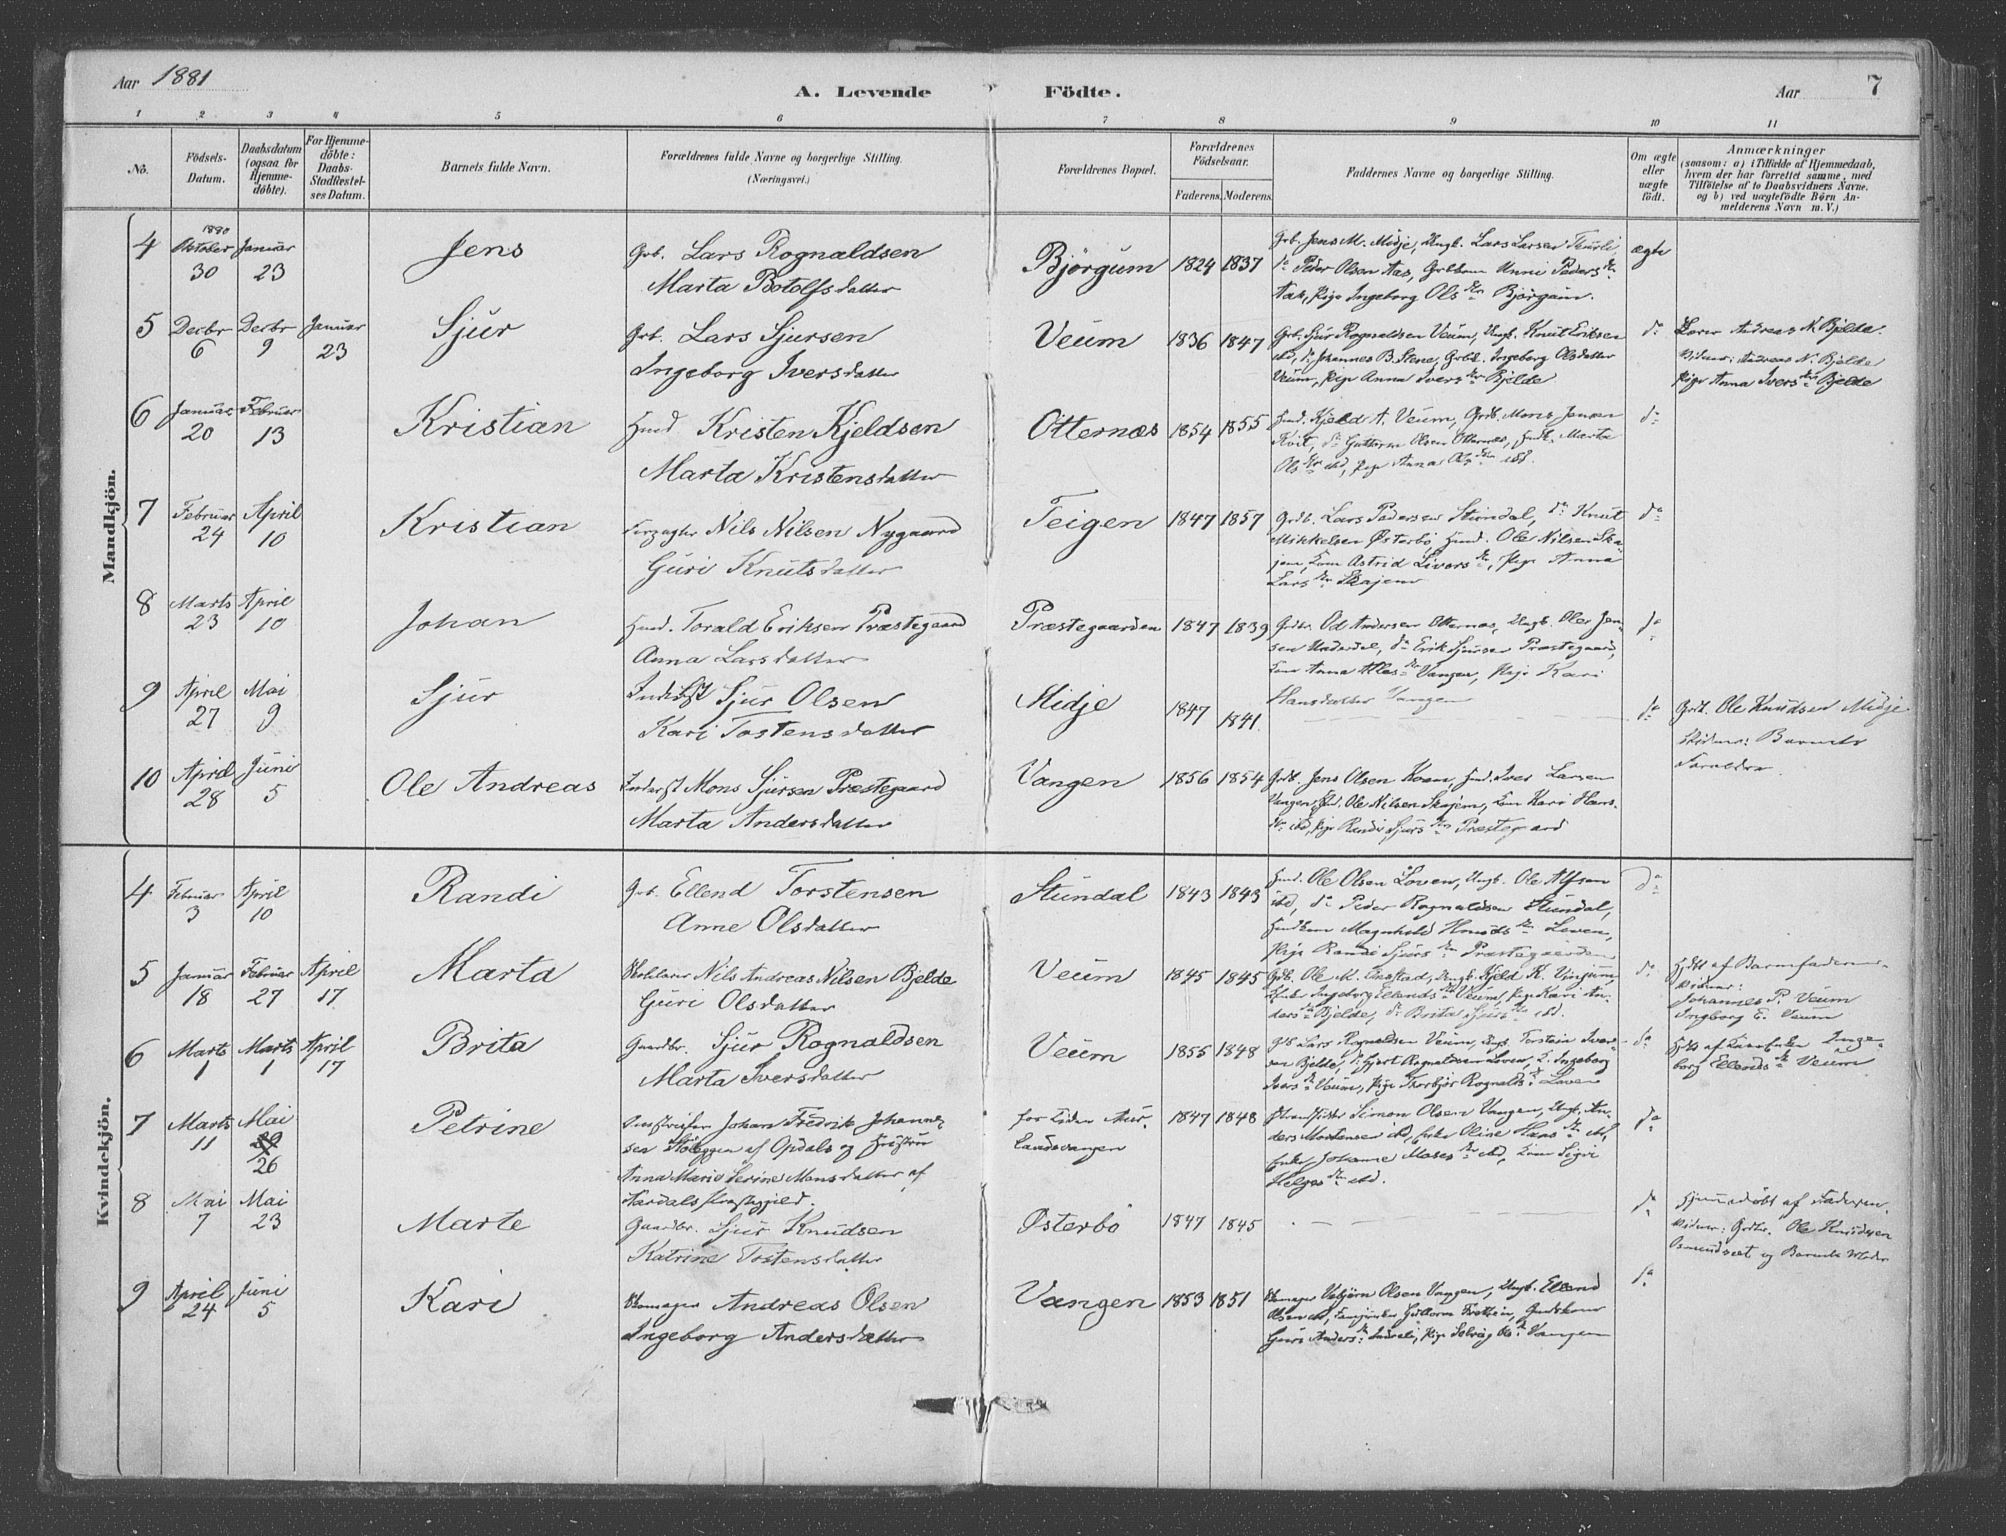 Aar 1881
A. Levende Födte.
Aar 7
1 2 3 4 5 6 7 8 9 10 11
No.
Födsels-Datum.
Daabsdatum (ogsaa for Hjemme-döbte).
For Hjemme-döbte: Daabs-Stadfæstel-ses Datum.
Barnets fulde Navn.
Forældrenes fulde Navne og borgerlige Stilling. (Næringsvei.)
Forældrenes Bopæl.
Forældrenes Födselsaar.
Faderens. Moderens.
Faddernes Navne og borgerlige Stilling.
Om ægte eller uægte födt.
Anmærkninger
(saasom: a) i Tilfælde af Hjemmedaab, hvem der har forrettet samme, med Tilföielse af to Daabsvidners Navne, og b) ved uægtefödte Börn An-melderens Navn m. V.)
Mandkjön.
4 1880 Oktober 30 Januar 23 Jens Grb. Lars Rognaldsen
Marta Botolfsdatter
Björgum 1824 1837 Grb. Jens M. Midje, Ungk. Lars Larsen
Peder Olsen Aas, Unni Peders
Aas, Pige Ingeborg Ols Björgum.
ægte
5 Decbr 6 Decbr 9 Januar 23 Sjur Grb. Lars Sjursen
Ingeborg Iversdatter
Veum 1836 1847 Grb. Sjur Rognaldsen Veum, Ungk. Knut Eriksen
ibd, do Johannes B. Stene, Ingeborg Olsdatter
Veum, Pige Anna Ivers Bjelde
do
Lærer Andreas N. Bjelde.
Vidner: Andreas N. Bjelde
Pige Anna Ivers Bjelde
6 Januar 20 Februar 13 Kristian Husd Kristen Kjeldsen
Marta Kristensdatter
Otternæs 1854 1855 Husd. Kjeld A. Veum, Grdb. Mons Jensen
do Guttorm Olsen Otternæs, Marta
Ols ibd, Pige Anna Ols ibd.
do
7 Februar 24 April 10 Kristian Nils Nilsen Nygaard
Guri Knutsdatter
Teigen 1847 1857 Grdb. Lars Pedersen Stundal, do Knut
Mikkelsen Østerbö Husd. Ole Nilsen Ska-
jem, Astrid Livers, Pige Anna
Lars Skajem
do
8 Marts 23 April 10 Johan Husd. Torald Eriksen Præstegaard
Anna Larsdatter
Præstegaarden 1847 1839 Grdb. Od Andersen Otternæs, Ungk. Oler Jen-
sen Underdal, do Erik Sjursen Præstegaard,
Anna Vangen, Pige Kari
Hansdatter Vangen
do
9 April 27 Mai 9 Sjur Sjur Olsen
Kari Tostensdatter
Midje 1847 1841
do
Grdb. Ole Knudsen Midje
Vidner: Barnets
Forældre.
10 April 28 Juni 5 Ole Andreas Inderst Mons Sjursen Præstegaard
Marta Andersdatter
Vangen 1856 1854 Grdb. Jens Olsen Iver Larsen
Vangen, Ole Nilsen Skajem, Kari Hans-
ibd, Pige Randi Sjurs Præstegaard
Kvindekjön.
4 Februar 3 April 10 Randi Grb. Ellend Torstensen
Anne Olsdatter
Stundal 1843 1843 Husd. Ole Olsen Loven, Ungk. Ole Alfsen
ibd, do Peder Rognaldsen Stundal,
Magnhild Knuds Loven,
Pige Randi Sjurs Præstegaarden
do
5 Januar 18 Februar 27 April 17 Marta Nils Andreas Nilsen Bjelde
Guri Olsdatter
Veum 1845 1845 Grdb. Ole M. Ungk. Kjeld K. Vinjum,
Enke Ingeborg Ellends Veum, Pige Kari An-
ders Bjelde, do Brita Sjurs ibd.
do
Hjdbt af Barnefaderen.
Vidner:
Johannes P. Veum
Ingborg E. Veum
6 Marts 1 Marts 1 April 17 Brita Gaardbr. Sjur Rognaldsen
Marta Iversdatter
Veum 1855 1848 Grb Lars Rognaldsen Veum, Ungk. Torstein Iver-
sen Bjelde, do Hjert Rognaldsen Loven, Ingeborg
Ivers Veum, Pige Thorbjör Rognalds Loven
do
Hjdbt af Inge-
borg Ellends Veum
7 Marts 11 Mai 26 Petrine Johan Fredrik Johanne-
sen af Opdals og Hustru
Anna Marie Serine Monsdatter af
Aardals Præstegjeld.
for Tiden Aur-
landsvangen
1847 1848 Simon Olsen Vangen, Ungk. An-
ders Mortensen ibd, Enke Oline Hans ibd,
Enke Johanne Moses ibd, Sigri
Helges ibd.
do
8 Mai 7 Mai 23 Marte Gaardbr. Sjur Knudsen
Katrine Tostensdatter
Østerbö 1847 1845
do
Hjemmedöbt af Faderen.
Vidner: Grdbr. Ole Knudsen
og Barnets Moder
9 April 24 Juni 5 Kari Skomager Andreas Olsen
Ingeborg Andersdatter
Vangen 1853 1851 Skomager Vebjörn Olsen Vangen, Ungk. Ellend
Olsen ibd, Guttorm
Guri Anders, Pige Solvåg Ols Vangen
do